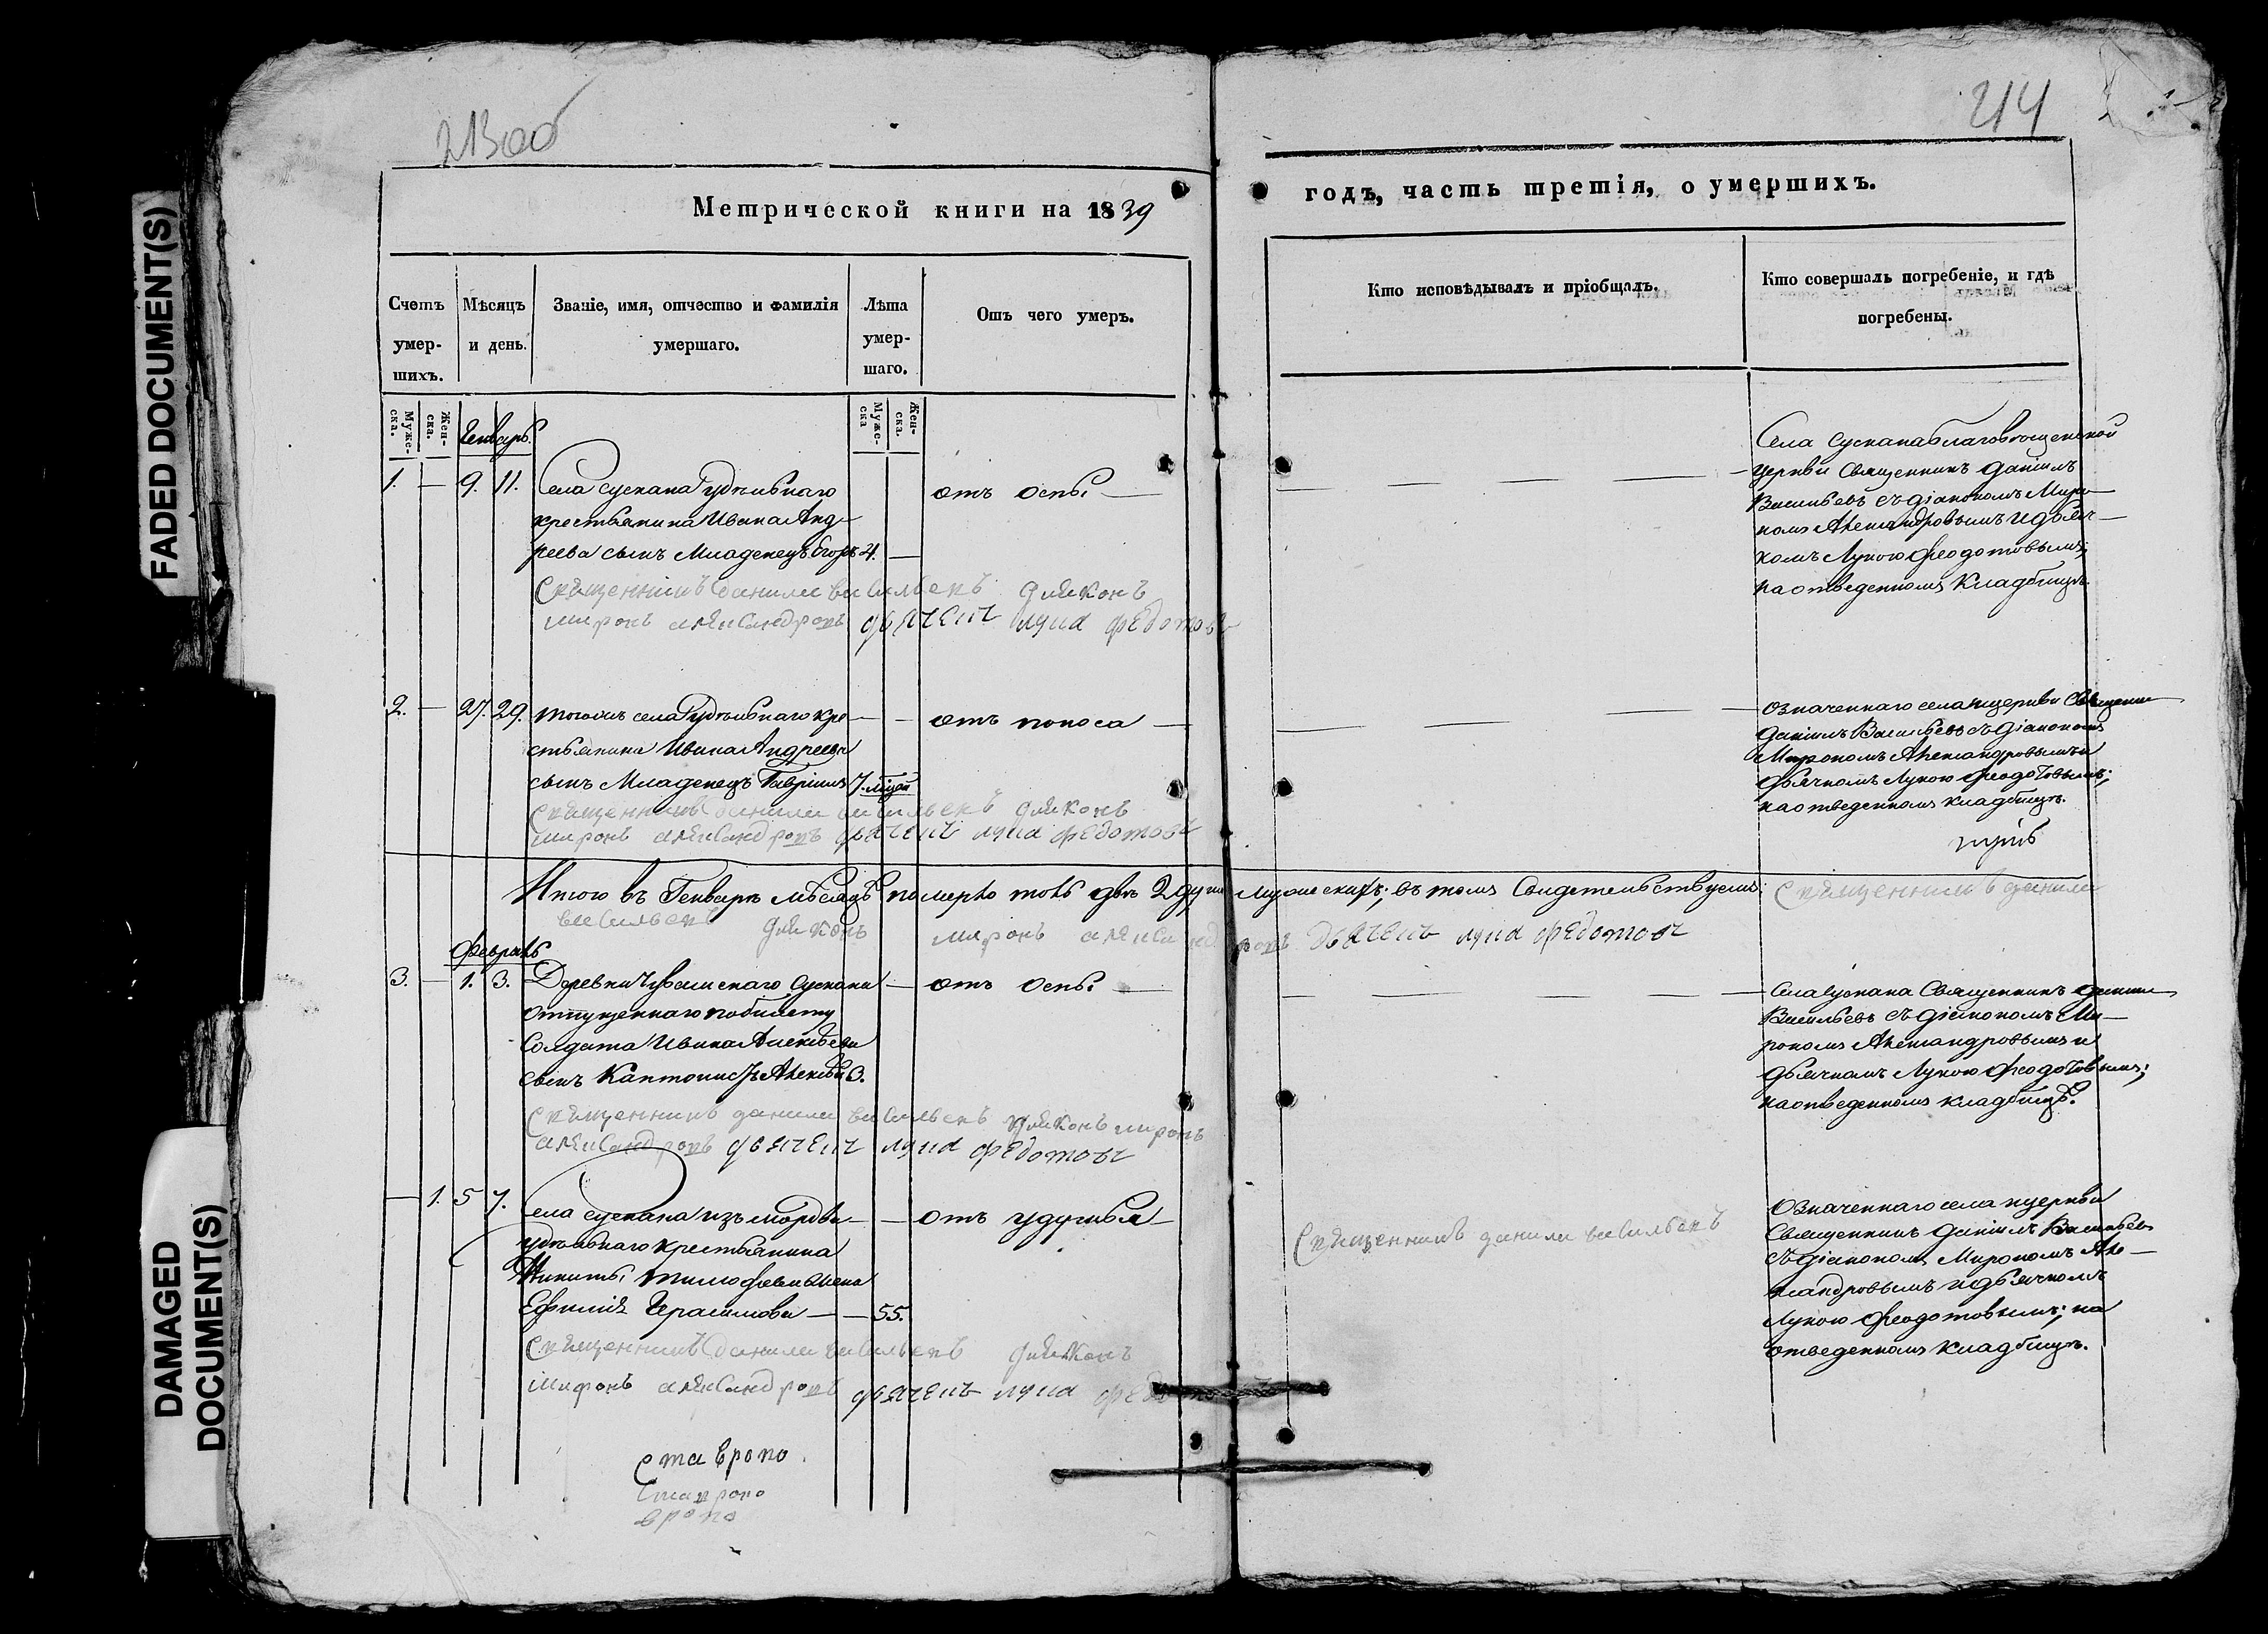 FADED DOCUMENT(S)
DAMAGED
DOCUMENT(S)
213об
214
Метрической книги на 1839
годъ, часть третія, о умершихъ.
Счетъ умер-шихъ.
Мѣсяцъ и день.
Званіе, имя, отчество и фамилія умершаго.
Лѣта умер-шаго.
Отъ чего умеръ.
Кто исповѣдывалъ и пріобщалъ.
Кто совершалъ погребеніе, и гдѣ погребены.
Муже-ска.
Жен-ска.
Муже-ска
Жен-ска.
Генварь.
1. — 9. 11. Села Сускана Удѣльнаго
крестьянина Ивана Анд-
реева сынъ Младенецъ Егоръ 4. —
отъ оспы —
Села Сускана благовѣщенской
церкви Священникъ Даніилъ
Васильевъ съ діакономъ Миро-
номъ Александровымъ и дьяч-
комъ Лукою Феодотовымъ;
на отведенномъ Кладбищѣ
Священникъ Данила Васильевъ дьяконъ
миронъ александровъ дьячекъ лука федотовъ
2. — 27. 29. тогожъ села Удѣльнаго кре-
стьянина Ивана Андреева
сынъ Младенецъ Гавріилъ 7. мѣсяц
— отъ поноса —
означеннаго села церкви Священни
Даніилъ Васильевъ съ діакономъ
Мирономъ Александровымъ и
дьячкомъ Лукою Феодотовымъ;
на отведенномъ кладбищѣ.
Священникъ Данила Васильевъ дьяконъ
миронъ александровъ дьячекъ лука федотовъ
Итого въ Генварѣ мѣсяцѣ померло двѣ 2 души Мужескихъ; въ томъ Свидетельствуемъ: Священникъ данила
васильевъ дьяконъ миронъ александровъ дьячекъ лука федотовъ
Февраль
3. — 1. 3. Деревни Чувашскаго Сускана
отпущеннаго по билету
Солдата Ивана Алексѣева
сынъ Кантонистъ Алексѣй 3.
— отъ оспы —
Села Сускана Священникъ Данiил
Васильевъ съ діакономъ Ми-
рономъ Александровымъ и
дьячкомъ Лукою Феодотовымъ;
на отведенномъ кладбищѣ.
Священникъ данила васильевъ дьяконъ миронъ
александровъ дьячекъ лука федотовъ
— 1. 5 7. Села Сускана изъ мордвы
удѣльнаго крестьянина
Никиты Тимофеева жена
Ефимія Герасимова — — 55.
— отъ удушья —
Священникъ данила васильевъ
Означеннаго села церкви
Священникъ Даніилъ Васильевъ
съ діакономъ Мирономъ Але-
ксандровымъ и дьячкомъ
Лукою Феодотовымъ; на
отведенномъ кладбищѣ.
Священникъ Данила васильевъ дьяконъ
миронъ александровъ дьячекъ лука федотовъ
Ставропо
Ставропо
вропо